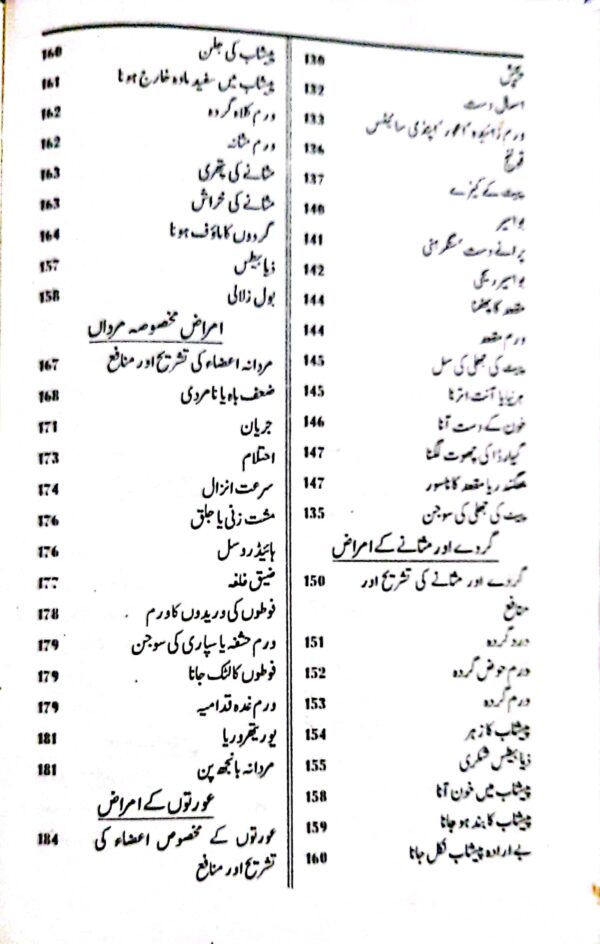 پیچش 130
اسہال دست 132
ورم زائیدہ اعور اپنڈی سائیٹس 133
قولنج 136
پیٹ کے کیڑے 137
بواسیر 140
پرانے دست سنگرہنی 141
بواسیر ریحی 142
مقعد کا پھٹنا 144
ورم مقعد 144
پیٹ کی جھلی کی سل 145
ہرنیا یا آنت اترنا 145
خون کے دست آنا 146
گیارڈا کی چھوت لگنا 147
بھگندر یا مقعد کا ناسور 147
پیٹ کی جھلی کی سوجن 135
گردے اور مثانے کے امراض
گردے اور مثانے کی تشریح اور 150
منافع
درد گردہ 151
ورم حوض گردہ 152
ورم گردہ 153
پیشاب کا زہر 154
ذیابیطس شکری 155
پیشاب میں خون آنا 158
پیشاب کا بند ہو جانا 159
بے ارادہ پیشاب نکل جانا 160
پیشاب کی جلن 160
پیشاب میں سفید مادہ خارج ہونا 161
ورم کلاہ گردہ 162
ورم مثانہ 162
مثانے کی پتھری 163
مثانے کی خراش 163
گردوں کا ماؤف ہونا 164
ذیابیطس 157
بول زلالی 158
امراض مخصوصہ مرداں
مردانہ اعضاء کی تشریح اور منافع 167
ضعف باہ یا نامردی 168
جریان 171
احتلام 173
سرعت انزال 174
مشت زنی یا جلق 176
ہائیڈروسل 176
ضیق غلفہ 177
فوطوں کی وریدوں کا ورم 178
ورم حشفہ یا سپاری کی سوجن 179
فوطوں کا لٹک جانا 179
ورم غدہ قدامیہ 179
یوریتھروریا 181
مردانہ بانجھ پن 181
عورتوں کے امراض
عورتوں کے مخصوص اعضاء کی 184
تشریح اور منافع